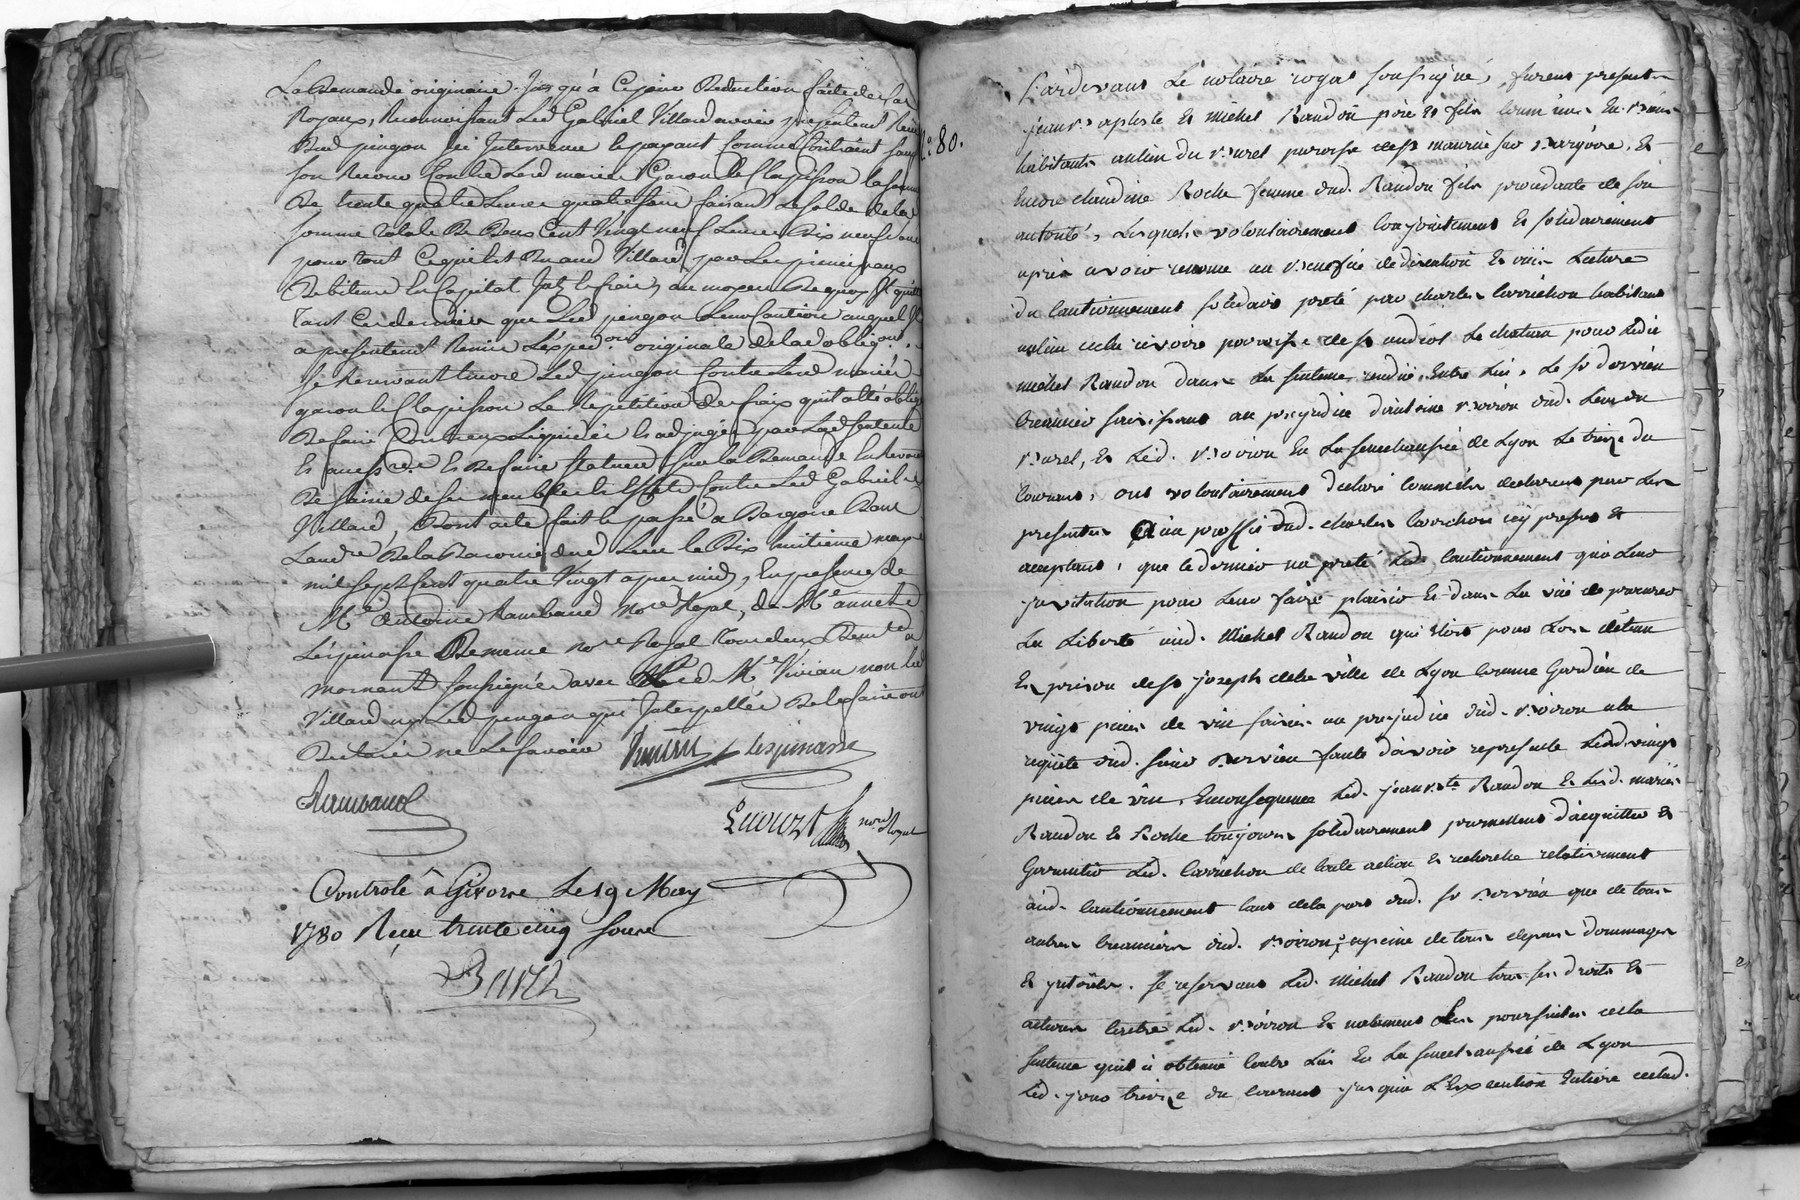 La Demande originaire jusqu'à Cejour Deduction faite de ses
Royaux, Reconnoissant Led Gabriel Villard avoir presentement Reçu
Dud pingon ici Intervenu le payant comme Contraint sauf
son Recours Contre Lesd mariés Garon et Clapisson la somme
De trente quatre Livres quatre sous faisant Le solde de la
somme Totale De Deux Cent Vingt neuf Livres Dix neuf sous
pour tout Ce qui Est Du aud Villard par Les principaux
Debiteurs En Capital Int. et frais, au moyen De quoy Il quitte
Tant Ces derniers que Led pingon Leur Caution auquel Il
a presentement Remis L'expedon originale de lad obligon.
Se Reservant Encore Led pingon Contre Lesd mariés
garon et Clapisson La Repetition des frais qu'il a été obligé
De faire
Es De faire statuer sur la Demande En
De saisie de ses meubles et Effets Contre Led Gabriel
Villard, Dont acte fait et passé a
De la Baronie dud Lieu le Dix huitieme may
mil sept Cent quatre Vingt apres midy, En presence de
Me Antoine Rambaud Nore Royal, de Me annet
Lespinasse De meme nore Royal Tous deux
mornant soussignés avec Med Me Vivian non led
Villard ny Led pengon qui Interpellés De le faire ont
Declarés ne Le savoir lespinasse
Rambaud
nore Royal
Controlé à Givors Le 19 May
1780 Reçu trente cinq sous
No 80.
Pardevant Le notaire royal soussigné, furent presents
jean Baptiste Et Michel Randon pere Et fils
habitants au lieu du Burel paroisse de st maurice sur Dargoire, Et
Encore claudine Roche femme dud. Randon fils procedante de son
autorité, Lesquels volontairement conjointement Et solidairement
après avoir renoncé au Benefice de division Et
Du Cautionnement solidaire preté par charles Corrichon habitant
au lieu de paroisse de st andéol Le chateau pour Led
michel Randon dans La sentence rendüe Entre Lui, Le sr Dervieu
Creancier saisissant au prejudice d'antoine Voiron dud. Lieu du
Burel, Et Led. Voiron En La senechaussée de Lyon Le treize du
Courant, ont volontairement declaré comme ils declarent par Les
presentes au proffit dud. charles Corrichon icy present Et
acceptant, que le dernier n'a preté Led. Cautionnement qu'a Leur
invitation pour Leur faire plaisir Et dans La vüe de procurer
La Liberté aud. Michel Randon qui Etoit pour Lors detenu
Es prison de st joseph de la ville de Lyon Comme Gardien de
vingt pieces de vin saisies au prejudice dud. Voiron a la
requete dud. sieur Dervieu faute d'avoir representé Lesd. vingt
pieces de vin, En consequence Led. jean Bte Randon Et Lesd. mariés
Randon Et Roche toujours solidairement promettent d'acquitter Et
Garantir Led. Corrichon de toute action Et recherche relativement
aud. Cautionnement tant de la part dud. sr Dervieu que de tous
autres Creanciers dud. Voiron, a peine de tous depens Dommages
Et interets. Se reservant Led. Michel Randon tous ses droits Et
actions Contre Led. Voiron Et notament Les poursuites de la
sentence qu'il a obtenüe Contre Lui En La senechaussée de Lyon
Led. jour treize du Courant jusqu'a L'Execution Entiere de lad.